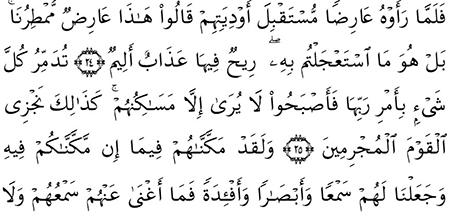 فَلَمَّا رَأَوْهُ عَارِضًا مُّسْتَقْبِلَ أَوْدِيَتِهِمْ قَالُوا۟ هَـٰذَا عَارِضٌ مُّمْطِرُنَا ۚ
بَلْ هُوَ مَا ٱسْتَعْجَلْتُم بِهِۦ ۖ رِيحٌ فِيهَا عَذَابٌ أَلِيمٌ ﴿٢٤﴾ تُدَمِّرُ كُلَّ
شَىْءٍۭ بِأَمْرِ رَبِّهَا فَأَصْبَحُوا۟ لَا يُرَىٰٓ إِلَّا مَسَـٰكِنُهُمْ ۚ كَذَٰلِكَ نَجْزِى
ٱلْقَوْمَ ٱلْمُجْرِمِينَ ﴿٢٥﴾ وَلَقَدْ مَكَّنَّـٰهُمْ فِيمَآ إِن مَّكَّنَّـٰكُمْ فِيهِ
وَجَعَلْنَا لَهُمْ سَمْعًا وَأَبْصَـٰرًا وَأَفْـِٔدَةً فَمَآ أَغْنَىٰ عَنْهُمْ سَمْعُهُمْ وَلَآ